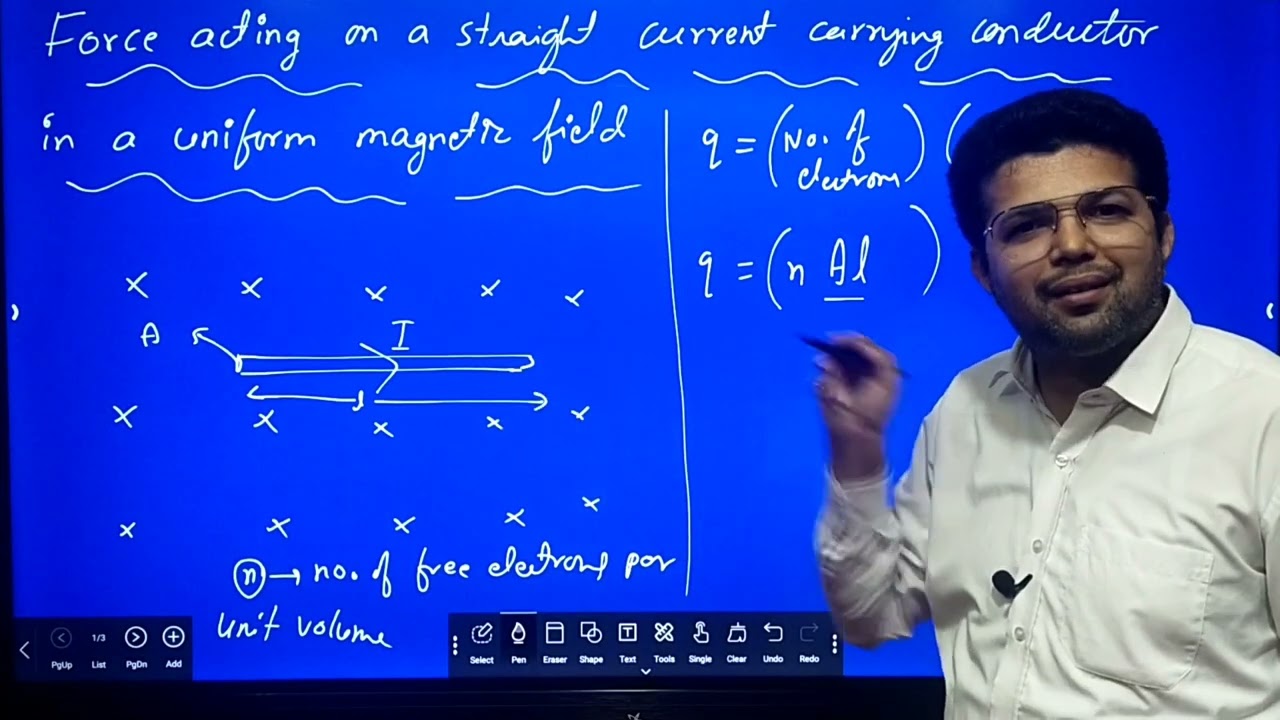 Force acting on a straight current carrying conductor
in a uniform magnetic field
q = (No. of electrons) (
q = (n Al )
x x x x x
A I
l
x x x x x
x x x x x
(n) → no. of free electrons per
unit volume
PgUp 1/3 List PgDn Add
Select Pen Eraser Shape Text Tools Single Clear Undo Redo